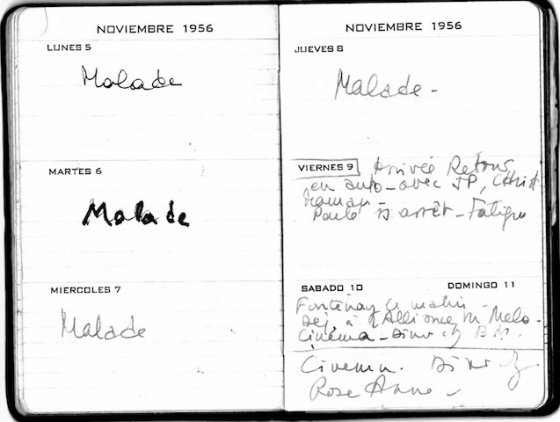 NOVIEMBRE 1956
LUNES 5
Malade
MARTES 6
Malade
MIERCOLES 7
Malade
NOVIEMBRE 1956
JUEVES 8
Malade -
VIERNES 9 Arrivée Retour
en auto - avec JP, Christ
maman -
Paulo arrêt - Fatigue
SABADO 10 DOMINGO 11
Fontenay le matin -
Déj. à l'Alliance
Cinéma - Diner B.M.
Cinema. Diner
Rose Anne -